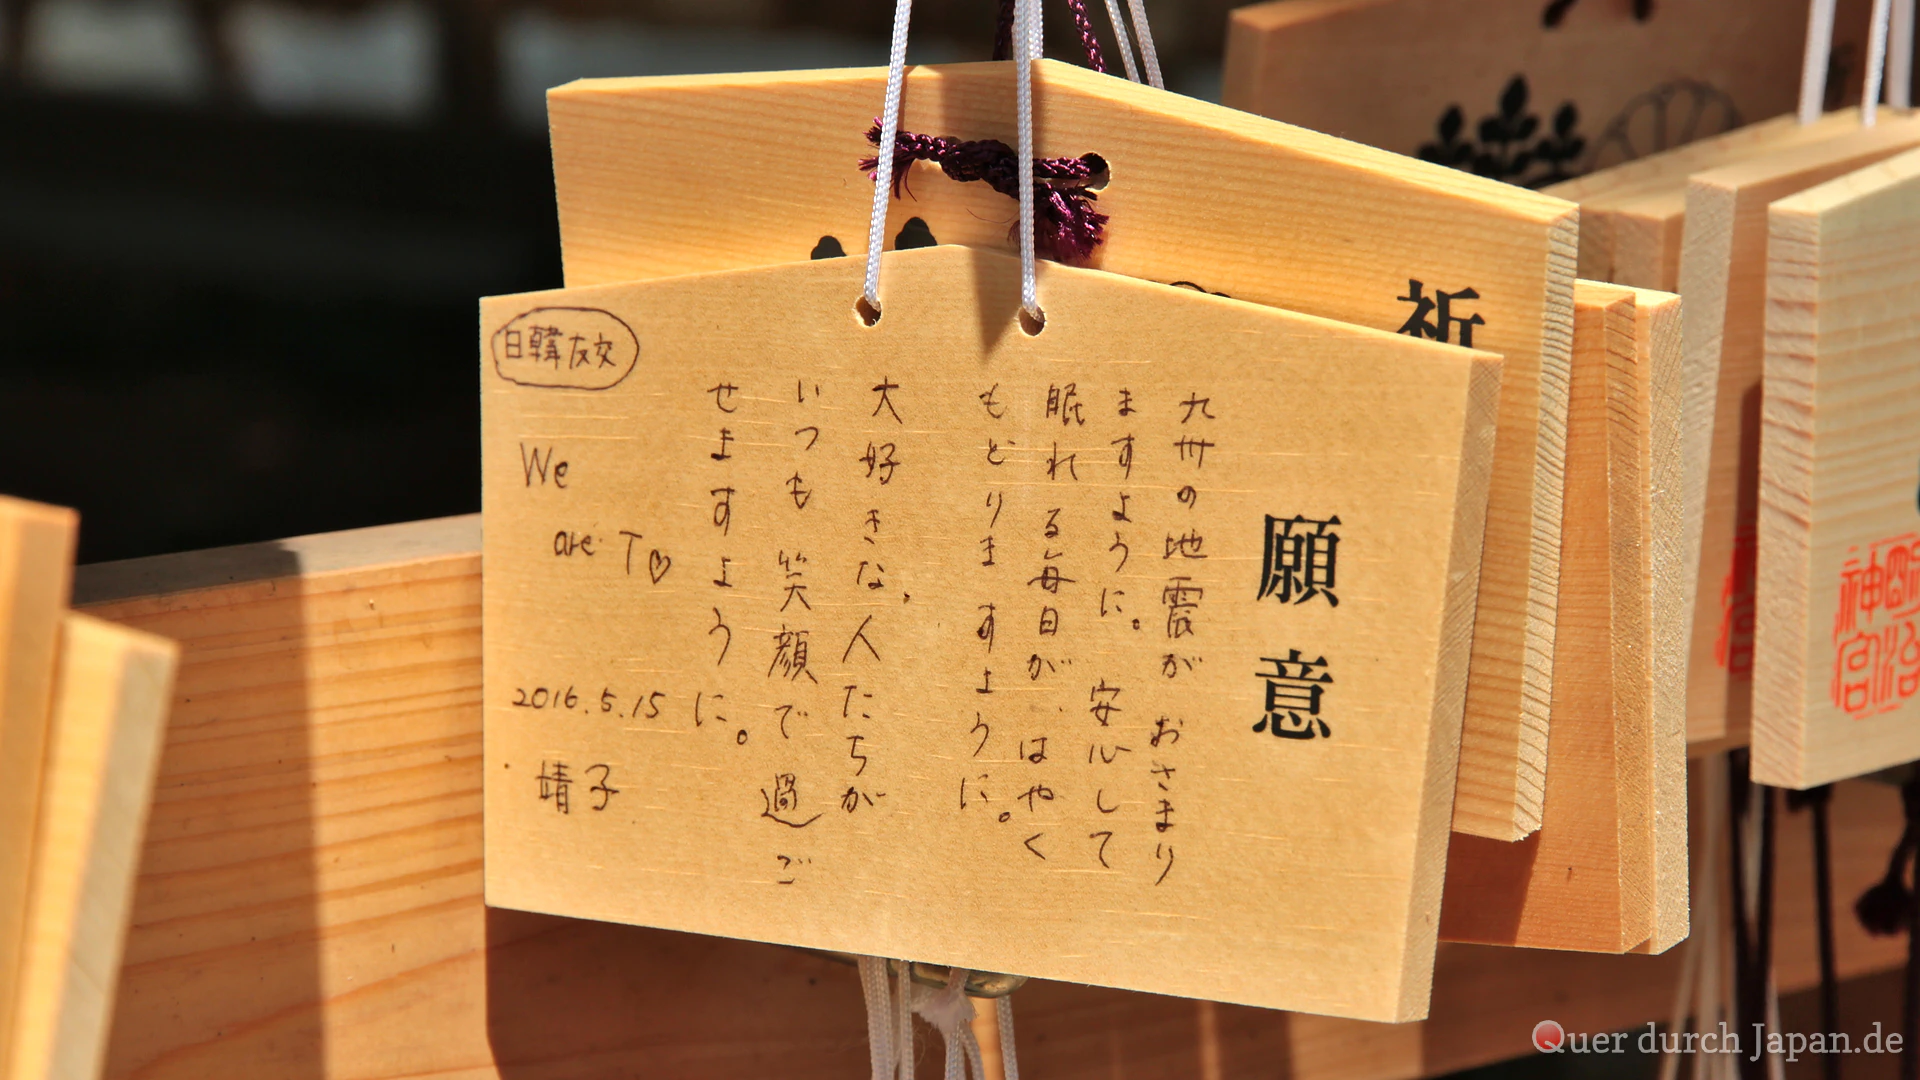 願意
九州の地震がおさまり
ますように。安心して
眠れる毎日が、はやく
もどりますように。
大好きな人たちが
いつも笑顔で過ご
せますように。
日韓友交
We
are T♡
2016.5.15
靖子
祈
明治
神宮
Quer durch Japan.de